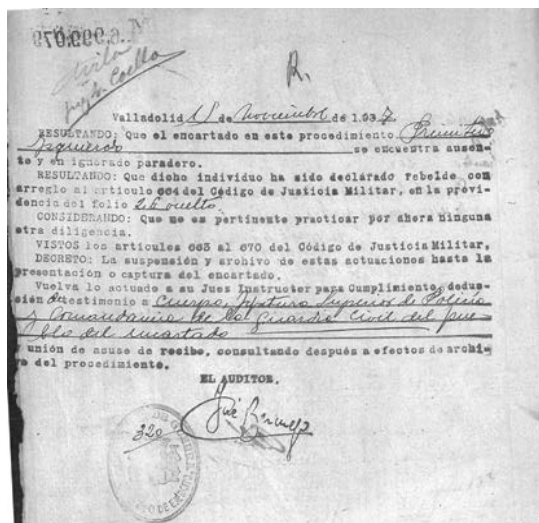 6.999.079
Avila
Coello
R.
Valladolid 11 de Noviembre de 1.937
RESULTANDO: Que el encartado en este procedimiento Primitivo
Izquierdo se encuentra ausen-
te y en ignorado paradero.
RESULTANDO: Que dicho individuo ha sido declarado rebelde con
arreglo al artículo 664 del Código de Justicia Militar, en la provi-
dencia del folio 26 vuelto
CONSIDERANDO: Que no es pertinente practicar por ahora ninguna
otra diligencia.
VISTOS los artículos 663 al 670 del Código de Justicia Militar,
DECRETO: La suspensión y archivo de estas actuaciones hasta la
presentación o captura del encartado.
Vuelva lo actuado a su Juez Instructor para Cumplimiento, deduc-
sión de testimonio a Cuerpo, Jefatura Superior de Policía
y Comandancia de la Guardia Civil del pue-
blo del encartado
y unión de acuse de recibo, consultando después a efectos de archi-
vo del procedimiento.
EL AUDITOR.
320